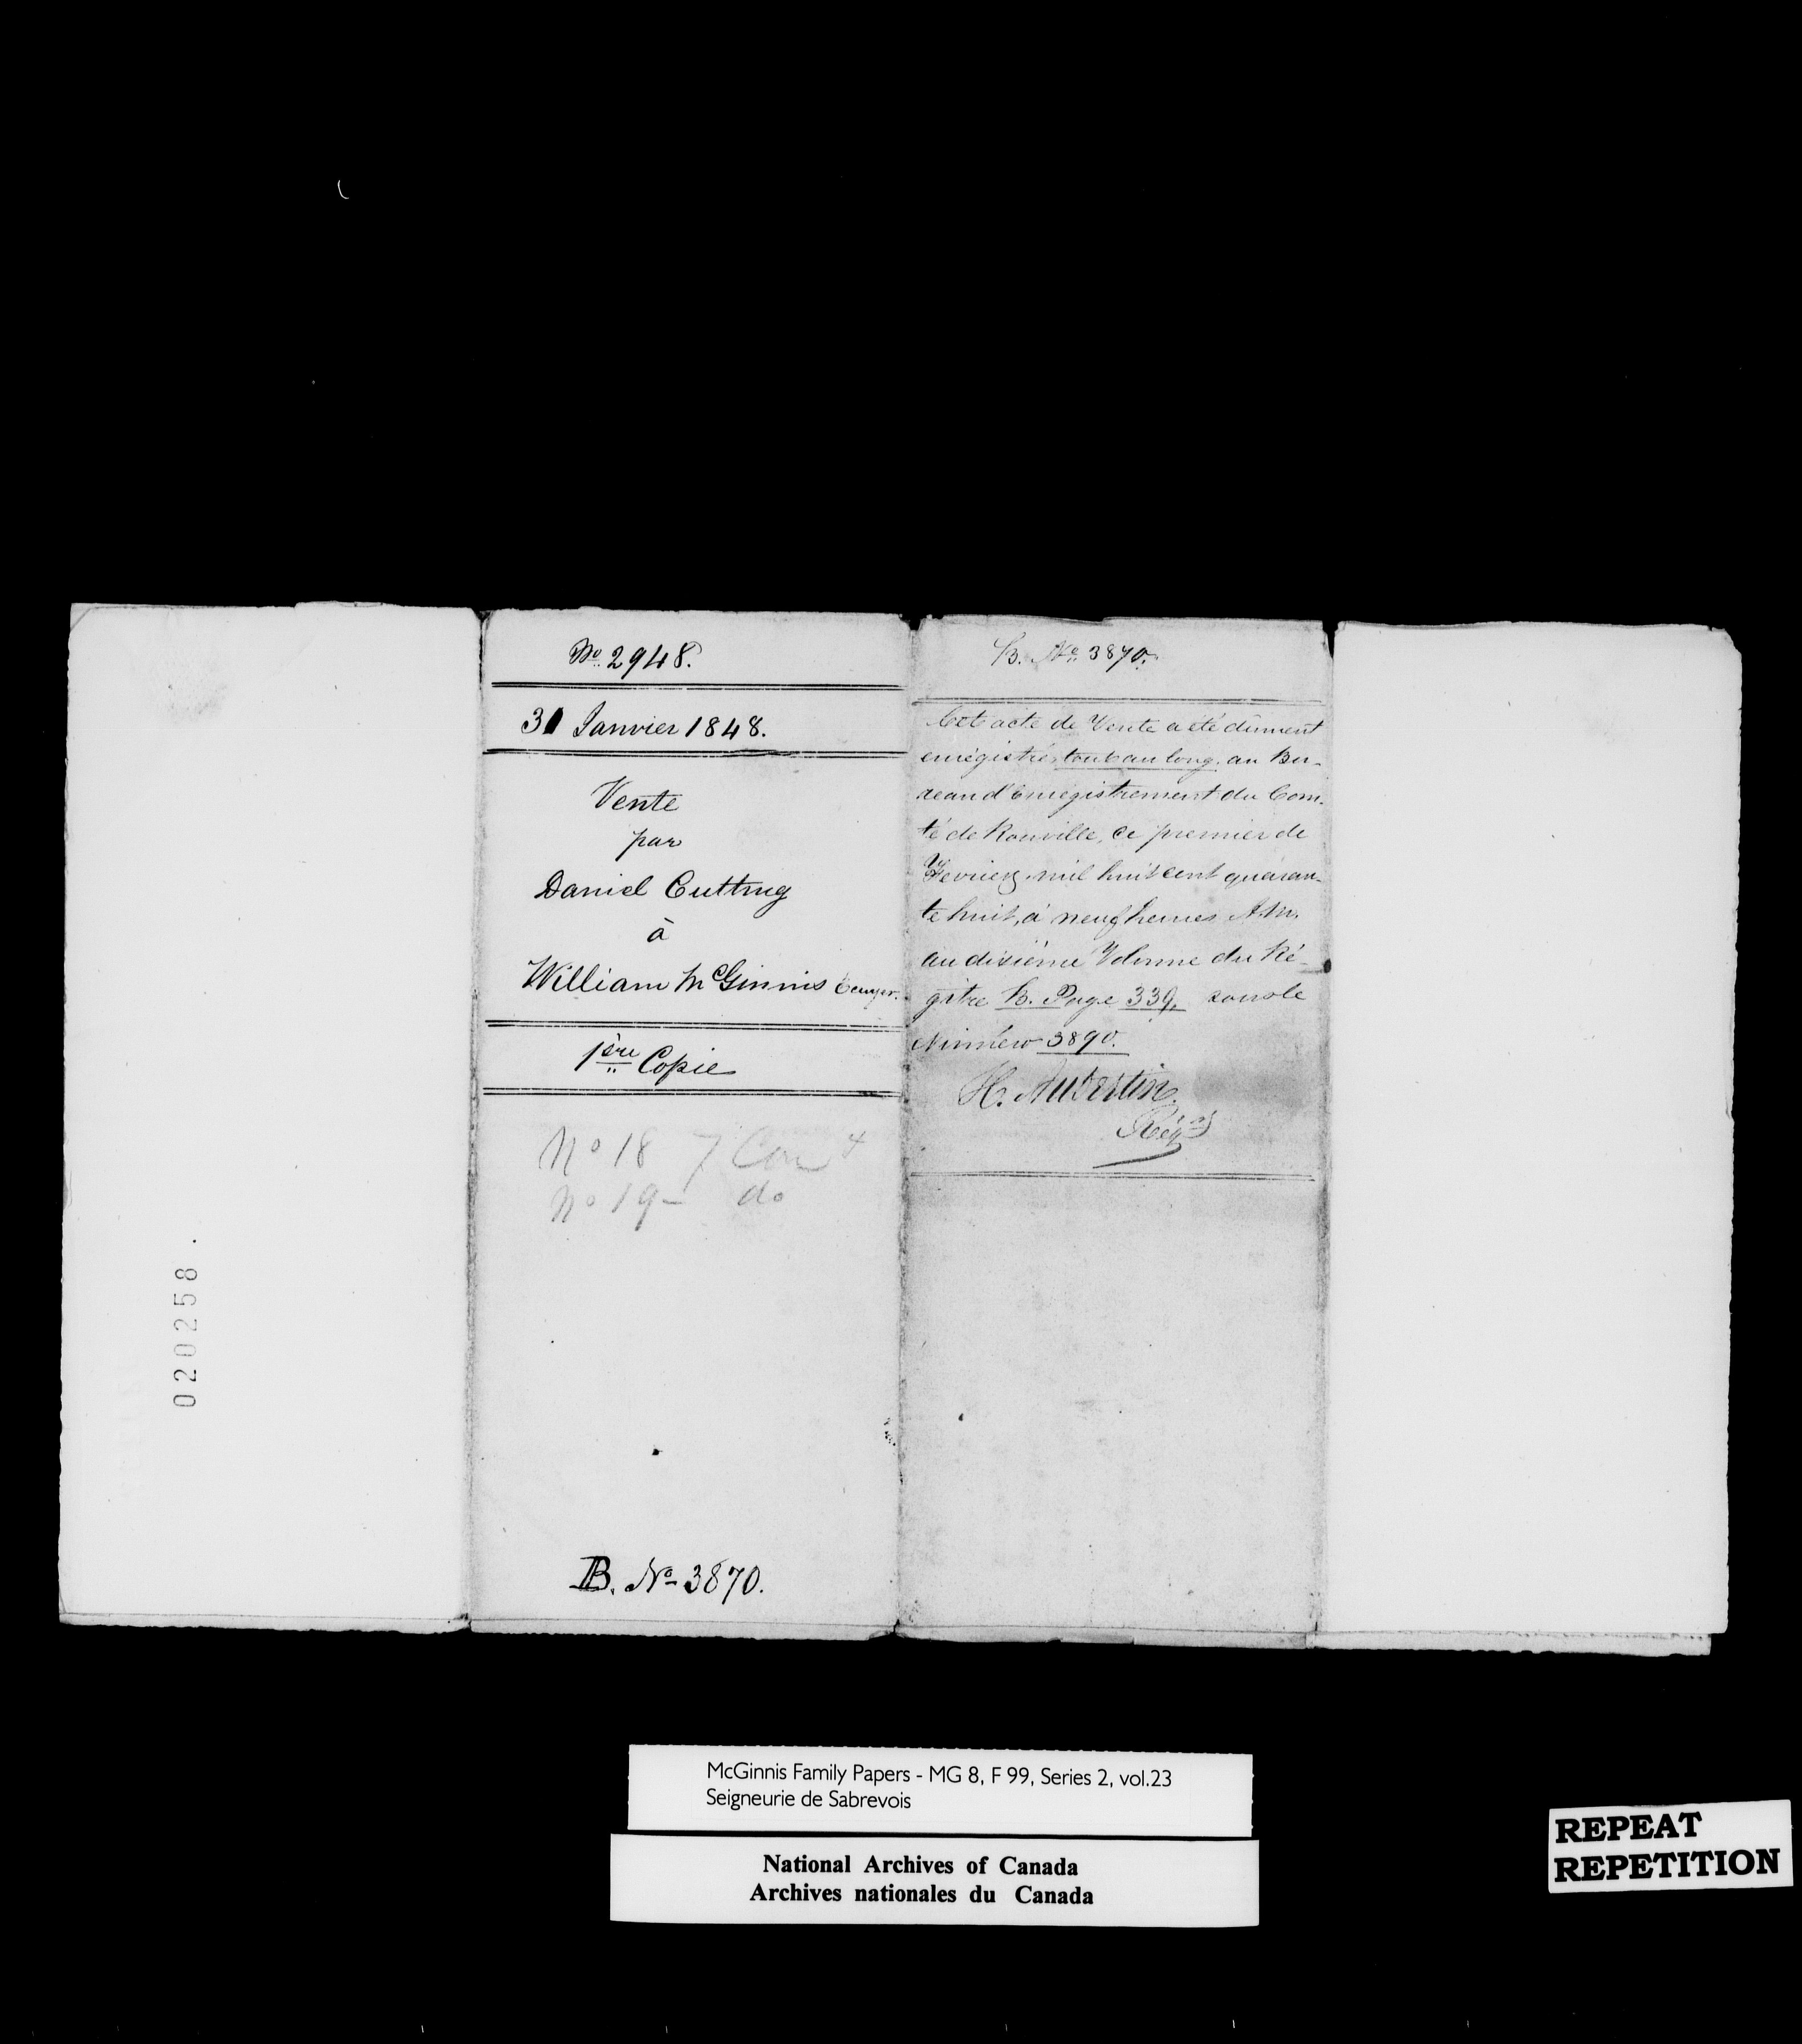 020258
No. 2948.
31 Janvier 1848.
Vente
par
Daniel Cutting
à
William McGinnis
1ère Copie
No 18 7 Con
No 19 - do
B. No 3870.
B. No. 3870.
Cet acte de Vente a été dûment
enrégistré, tout au long, au Bu-
reau d'Enrégistrement du Com-
té de Rouville, ce premier de
Fevrier, mil huit cent quaran-
te huit, à neuf heures A.M.
au dixième Volume du Ré-
gitre B. Page 339, sous le
Numéro 3890.
H. Aubertin
Régr
McGinnis Family Papers - MG 8, F 99, Series 2, vol.23
Seigneurie de Sabrevois
National Archives of Canada
Archives nationales du Canada
REPEAT
REPETITION